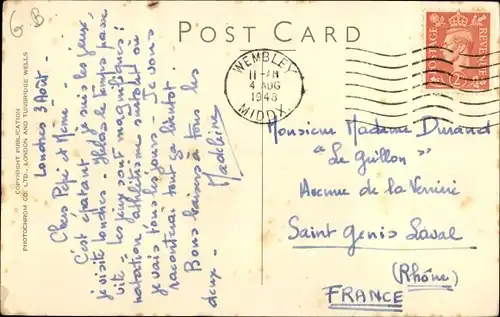 G B
POST CARD
WEMBLEY
11-AM
4 AUG
1948
MIDDX
POSTAGE REVENUE
2D
COPYRIGHT PUBLICATION
PHOTOCHROM CO. LTD., LONDON AND TUNBRIDGE WELLS
Londres 3 Août -
Chers Pépé et Mémé -
C'est épatant - je suis les jeux,
je visite Londres - Hélas le temps passe
vite - Les jeux sont magnifiques!
natation athlétisme surtout on
je vais tous les jours - Je vous
raconterai tout ça bientôt.
Bons baisers à tous les
deux -
Madeleine
Monsieur Madame Durand
"Le Guillon"
Avenue de la Verrière
Saint Genis Laval
(Rhône)
FRANCE